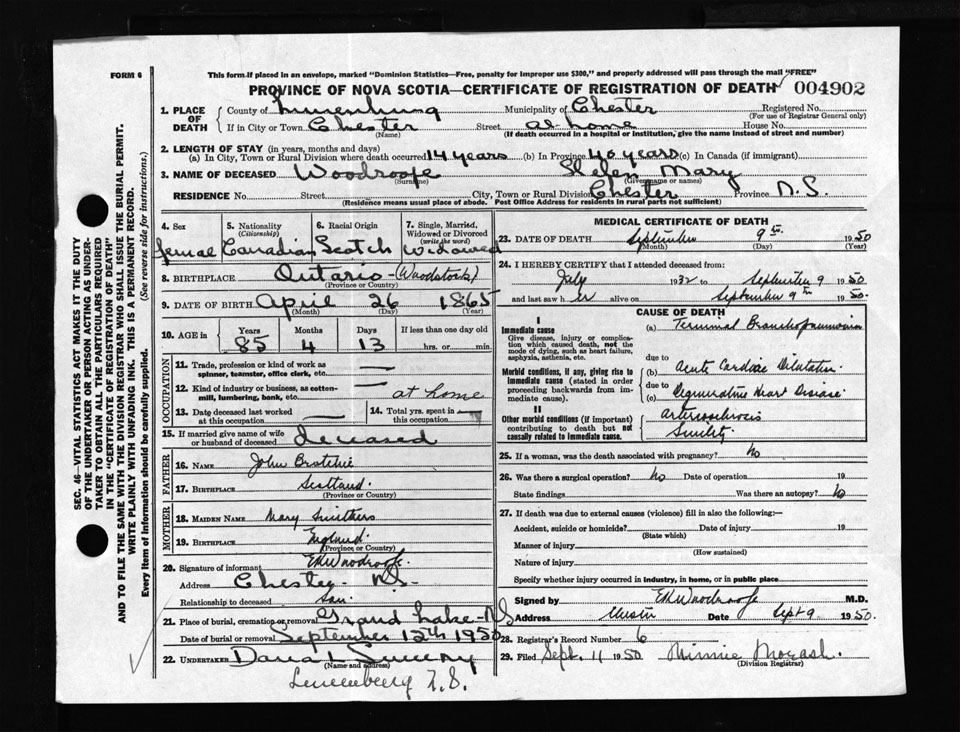 FORM 6
This form if placed in an envelope, marked "Dominion Statistics—Free, penalty for improper use $300," and properly addressed will pass through the mail "FREE"
PROVINCE OF NOVA SCOTIA—CERTIFICATE OF REGISTRATION OF DEATH 004902
1. PLACE OF DEATH
County of Lunenburg Municipality of Chester Registered No.
(For use of Registrar General only)
If in City or Town Chester Street at home House No.
(Name) (If death occurred in a hospital or institution, give the name instead of street and number)
2. LENGTH OF STAY (in years, months and days)
(a) In City, Town or Rural Division where death occurred 14 years (b) In Province 40 years (c) In Canada (if immigrant)
3. NAME OF DECEASED Woodroofe Helen Mary
(Surname) (Given name or names)
RESIDENCE No. Street City, Town or Rural Division Chester Province N.S.
(Residence means usual place of abode. Post Office Address for residents in rural parts not sufficient)
4. Sex 5. Nationality (Citizenship) 6. Racial Origin 7. Single, Married, Widowed or Divorced (write the word)
femal Canadian Scotch Widowed
8. BIRTHPLACE Ontario - (Woodstock)
(Province or Country)
9. DATE OF BIRTH April 26 1865
(Month) (Day) (Year)
10. AGE in Years Months Days If less than one day old
85 4 13 hrs. or min.
OCCUPATION
11. Trade, profession or kind of work as spinner, teamster, office clerk, etc. —
12. Kind of industry or business, as cotton-mill, lumbering, bank, etc. at home
13. Date deceased last worked at this occupation — 14. Total yrs. spent in this occupation —
15. If married give name of wife or husband of deceased deceased
FATHER
16. NAME John Bratchie
17. BIRTHPLACE Scotland
(Province or Country)
MOTHER
18. MAIDEN NAME Mary Smithers
19. BIRTHPLACE England
(Province or Country)
20. Signature of informant EK Woodroofe
Address Chester - N.S.
Relationship to deceased Son
21. Place of burial, cremation or removal Grand Lake - N.S
Date of burial or removal September 12th 1950
22. UNDERTAKER
(Name and address)
Lunenburg N.S.
MEDICAL CERTIFICATE OF DEATH
23. DATE OF DEATH September 9th 1950
(Month) (Day)
24. I HEREBY CERTIFY that I attended deceased from:
July 1932 to September 9 1950
and last saw her alive on September 9th 1950.
CAUSE OF DEATH
I
Immediate cause
Give disease, injury or complication which caused death, not the mode of dying, such as heart failure, asphyxia, asthenia, etc.
(a) Terminal Bronchopneumonia
due to
Morbid conditions, if any, giving rise to immediate cause (stated in order proceeding backwards from immediate cause).
(b) Acute Cardiac Dilatation
due to
(c) Degenerative Heart Disease
II
Other morbid conditions (if important) contributing to death but not causally related to immediate cause.
arteriosclerosis
Senility
25. If a woman, was the death associated with pregnancy? No
26. Was there a surgical operation? No Date of operation 19
State findings Was there an autopsy? No
27. If death was due to external causes (violence) fill in also the following:—
Accident, suicide or homicide? Date of injury 19
(State which)
Manner of injury
(How sustained)
Nature of injury
Specify whether injury occurred in industry, in home, or in public place
Signed by EK Woodroofe M.D.
Address Chester Date Sept 9 1950.
28. Registrar's Record Number 6
29. Filed Sept. 11 1950 Minnie Morash.
(Division Registrar)
SEC. 46—VITAL STATISTICS ACT MAKES IT THE DUTY
OF THE UNDERTAKER OR PERSON ACTING AS UNDER-
TAKER TO OBTAIN ALL THE PARTICULARS REQUIRED
IN THE "CERTIFICATE OF REGISTRATION OF DEATH"
AND TO FILE THE SAME WITH THE DIVISION REGISTRAR WHO SHALL ISSUE THE BURIAL PERMIT.
WRITE PLAINLY WITH UNFADING INK. THIS IS A PERMANENT RECORD.
Every item of information should be carefully supplied. (See reverse side for instructions.)